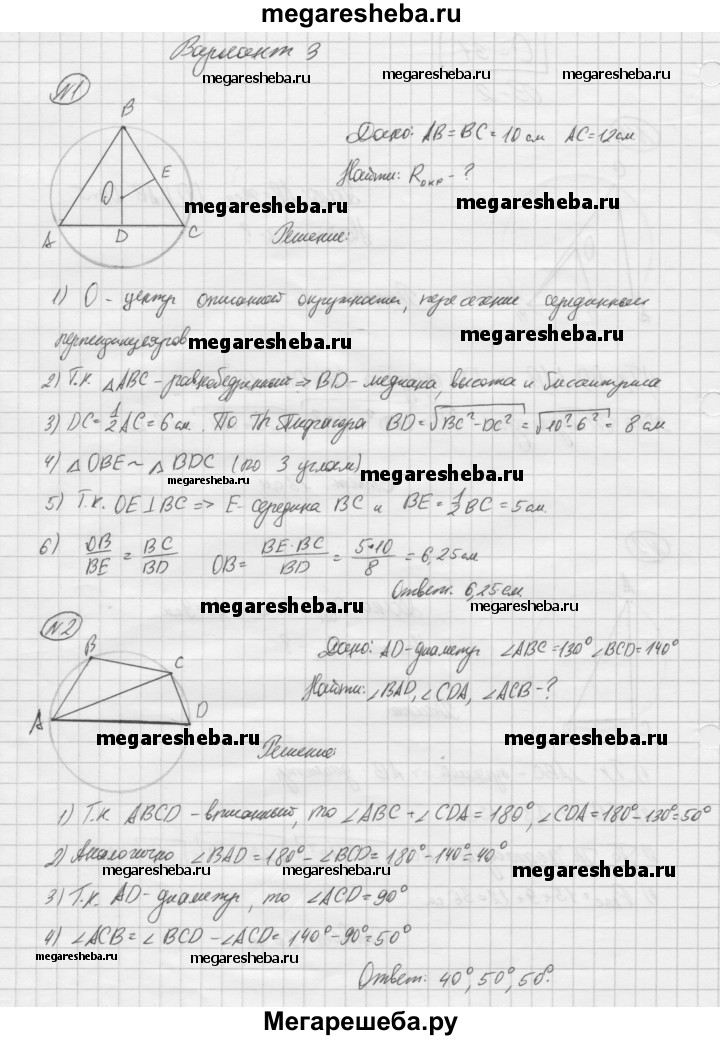 megaresheba.ru
Вариант 3
megaresheba.ru megaresheba.ru
№1
B
E
O
A D C
Дано: AB = BC = 10 см AC = 12 см
Найти: Rокр - ?
megaresheba.ru megaresheba.ru
Решение:
1) O - центр описанной окружности, пересечение серединных
перпендикуляров
megaresheba.ru megaresheba.ru
2) Т.к. △ABC - равнобедренный ⇒ BD - медиана, высота и биссектриса
3) DC = 1/2 AC = 6 см. По Th Пифагора BD = √BC² - DC² = √10² - 6² = 8 см
4) △OBE ~ △BDC (по 3 углам)
megaresheba.ru megaresheba.ru
5) Т.к. OE ⊥ BC ⇒ E - середина BC и BE = 1/2 BC = 5 см.
6) OB/BE = BC/BD OB = BE·BC/BD = 5·10/8 = 6,25 см
Ответ: 6,25 см
megaresheba.ru megaresheba.ru
№2
B
C
A D
Дано: AD - диаметр ∠ABC = 130° ∠BCD = 140°
Найти: ∠BAD, ∠CDA, ∠ACB - ?
megaresheba.ru megaresheba.ru
Решение:
1) Т.к. ABCD - вписанный, то ∠ABC + ∠CDA = 180°, ∠CDA = 180° - 130° = 50°
2) Аналогично ∠BAD = 180° - ∠BCD = 180° - 140° = 40°
megaresheba.ru megaresheba.ru
3) Т.к. AD - диаметр, то ∠ACD = 90°
4) ∠ACB = ∠BCD - ∠ACD = 140° - 90° = 50°
megaresheba.ru megaresheba.ru
Ответ: 40°, 50°, 50°.
Мегарешеба.ру